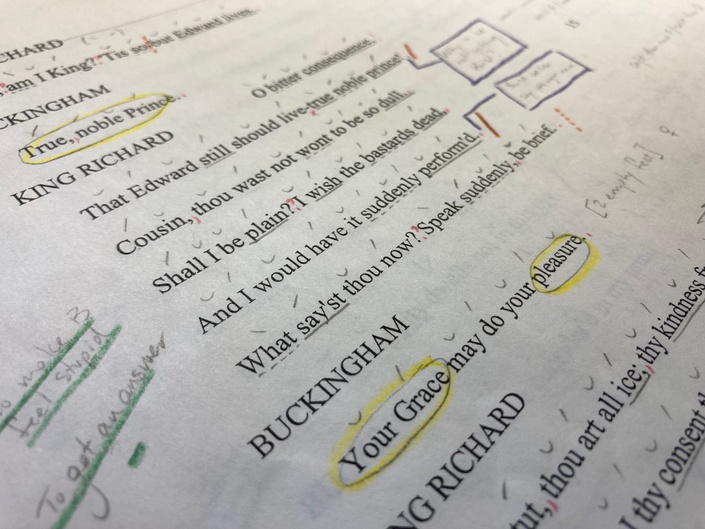 CHARD
am I King? 'Tis so; but Edward lives.
CKINGHAM
True, noble Prince.
KING RICHARD
O bitter consequence,
That Edward still should live-true noble prince!
Cousin, thou wast not wont to be so dull.
Shall I be plain? I wish the bastards dead,
And I would have it suddenly perform'd.
What say'st thou now? Speak suddenly, be brief.
BUCKINGHAM
Your Grace may do your pleasure.
[2 empty feet]
NG RICHARD
ut, thou art all ice; thy kindness f
thy consent th
make B
feel stupid
To get an answer
15